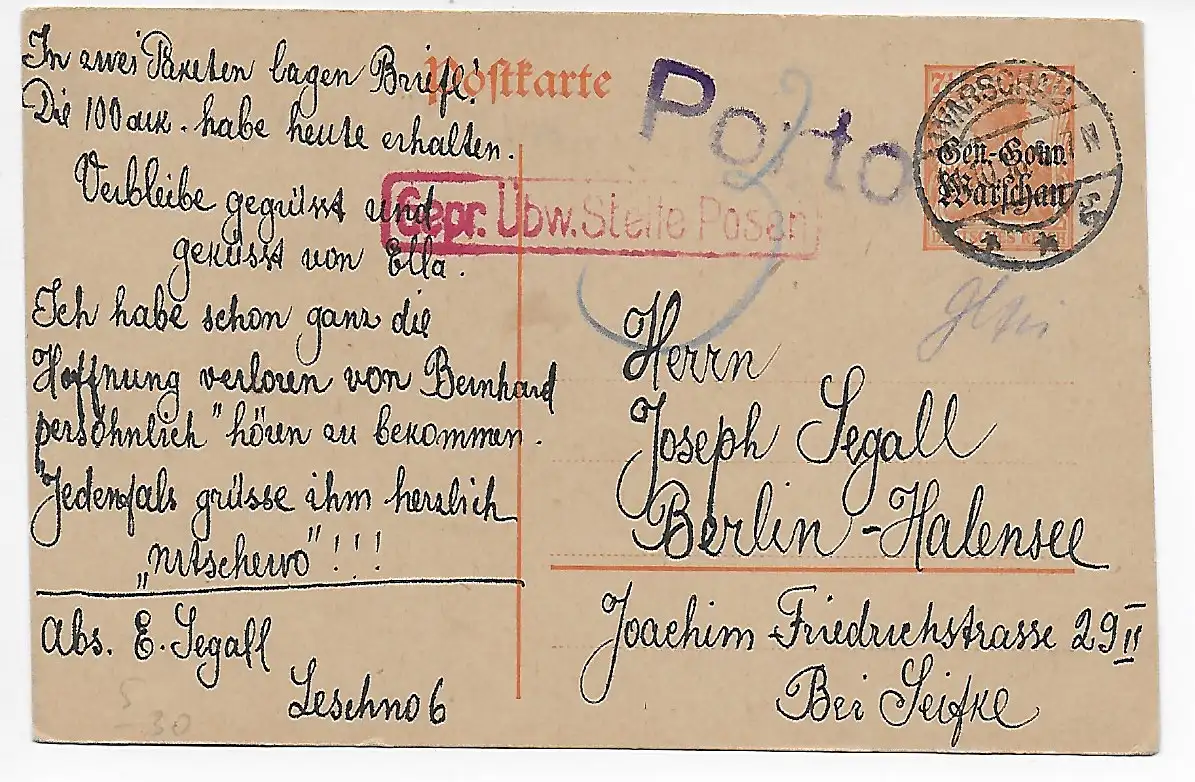 In zwei Paketen lagen Briefe!
Die 100 auk. habe heute erhalten.
Verbleibe gegrüsst und
geküsst von Ella.
Ich habe schon ganz die
Hoffnung verloren von Bernhard
persöhnlich" hören zu bekommen.
Jedenfals grüsse ihm herzlich
„nitschewo"!!!
Abs. E. Segall
Leschno 6
Postkarte
Porto
Gepr. Übw. Stelle Posen
WARSCHAU
Gen.-Gouv.
Warschau
Herrn
Joseph Segall
Berlin-Halensee
Joachim Friedrichstrasse 29 II
Bei Seifke
5
30